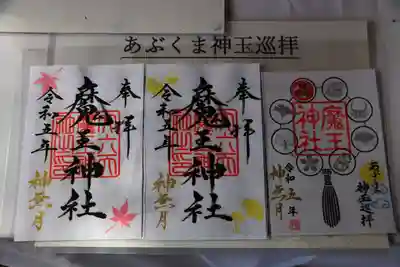 あぶくま神玉巡拝
奉拝
魔王神社
令和五年
神無月
奉拝
魔王神社
令和五年
神無月
魔王
神社
令和五年
神無月
あぶくま
神玉巡拝